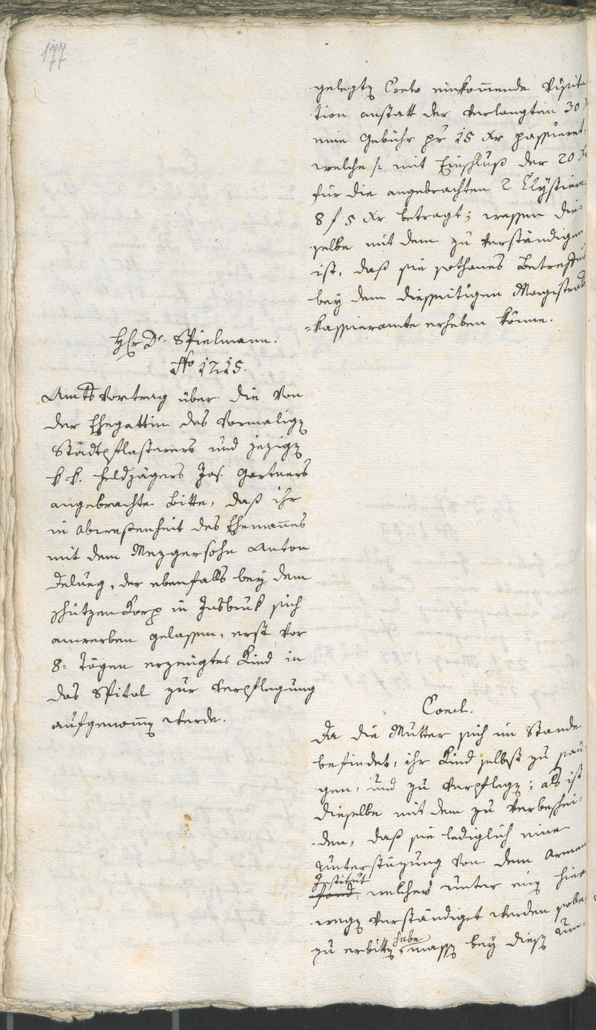 177
gelegte Conto einkom̄ende Visita
tion anstatt der verlangten 30 x
eine Gebühr pr 15 xr passieret,
welche s. mit Einschluß der 20 x
für die angebrachten 2 Clystiere
8 f 5 xr betragt; wessen die-
selbe mit dem zu verständigen
ist, daß sie sothanes Betreffniß
bey dem diesseitigen Magistrats
-kassieramte erheben könne.
Hr Dr. Spielmann.
No 1715.
Amtsvortrag über die von
der Ehegattin des vormalig
Stadtpflasterers und jezig
k. k. Feldjägers Jos. Gartners
angebrachte Bitte, daß ihr
in Abwesenheit des Ehemannes
mit dem Mezgersohn Anton
Delueg, der ebenfalls bey dem
schützen Korp in Insbruk sich
anwerben gelassen, erst vor
8. Tägen erzeugtes Kind in
das Spital zur Verpflegung
aufgenom̄en werde.
Concl.
Da die Mutter sich im Stande
befindet, ihr Kind selbst zu säu-
gen, und zu verpflegen; als ist
dieselbe mit dem zu verbeschei-
den, daß sie lediglich eine
Unterstüzung von dem Armen
Institut
fond, welcher unter ein hier
wegen verständiget werden solle
zu erbitten habe, massen bey diesen Um-